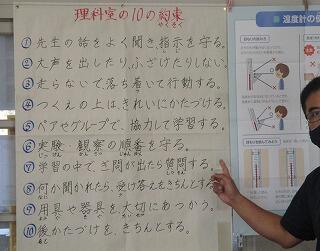 理科室の10の約束
やくそく
①先生の話をよく聞き指示を守る。
②大声を出したり、ふざけたりしない。
③走らないで落ち着いて行動する。
④つくえの上はきれいにかたづける。
⑤ペアやグループで、協力して学習する。
⑥実験、観察の順番を守る。
⑦学習の中で、ぎ問が出たら質問する。
⑧何か聞かれたら、受け答えをきちんとする。
⑨用具や器具を大切にあつかう。
⑩後かたづけを、きちんとする。
温度計の使